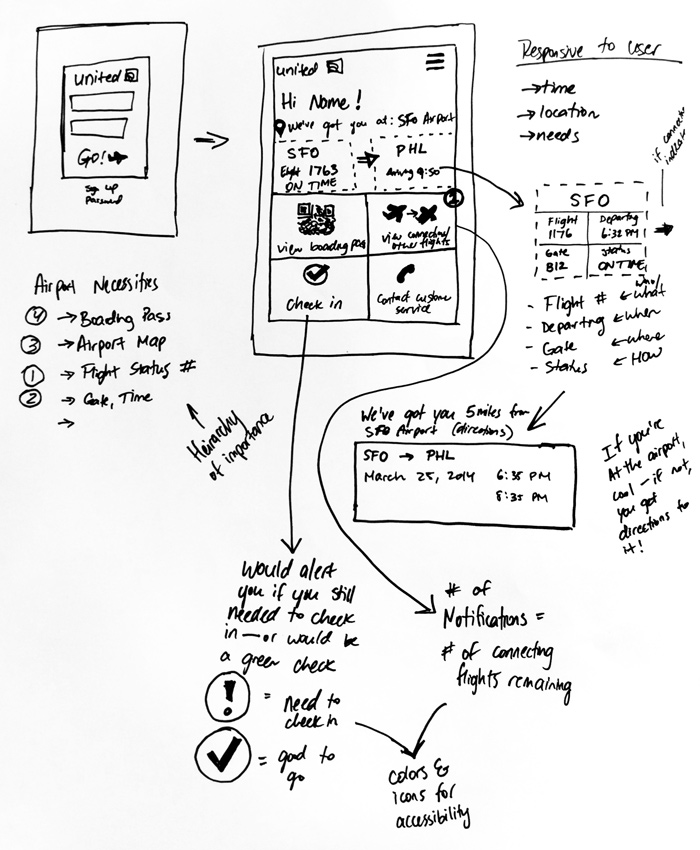 united
GO!
Sign up
Password
united
Hi Name!
We've got you at: SFO Airport
SFO
Flight 1763
ON TIME
PHL
Arriving 9:50
2
View boading pass
View connecting/
other flights
Check in
Contact customer
service
Responsive to User
→time
→location
→needs
if connecting
indicate
SFO
Flight
1176
Departing
6:32 PM
Gate
B12
Status
ON TIME
- Flight # ← who/what
- Departing ← when
- Gate ← where
- Status ← How
Airport Necessities
4 → Boading Pass
3 → Airport Map
1 → Flight Status #
2 → Gate, Time
→
Heirarchy
of importance
We've got you 5 miles from
SFO Airport (directions)
SFO → PHL
March 25, 2014 6:35 PM
8:35 PM
If you're
At the airport,
cool — if not,
you got
directions to
it!
Would alert
you if you still
needed to check
in — or would be
a green check
! = need to
check in
= good to
go
# of
Notifications =
# of connecting
flights remaining
colors &
icons for
accessibility